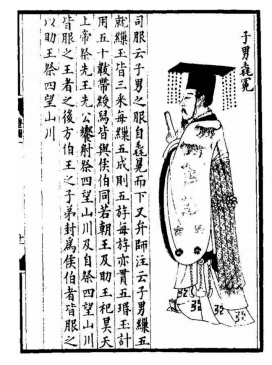 子男毳冕
司服云子男之服自毳冕而下又弁師注云子男繅五
就繅玉皆三采每繅五成則五旒每旒亦貫五瑠玉計
用五十韍帶綬舄皆與侯伯同若朝王及助王祀昊天
上帝祭先王先公饗射祭四望山川及自祭四望山川
皆服之王者之後方伯王之子弟封為侯伯者皆服之
以助王祭四望山川